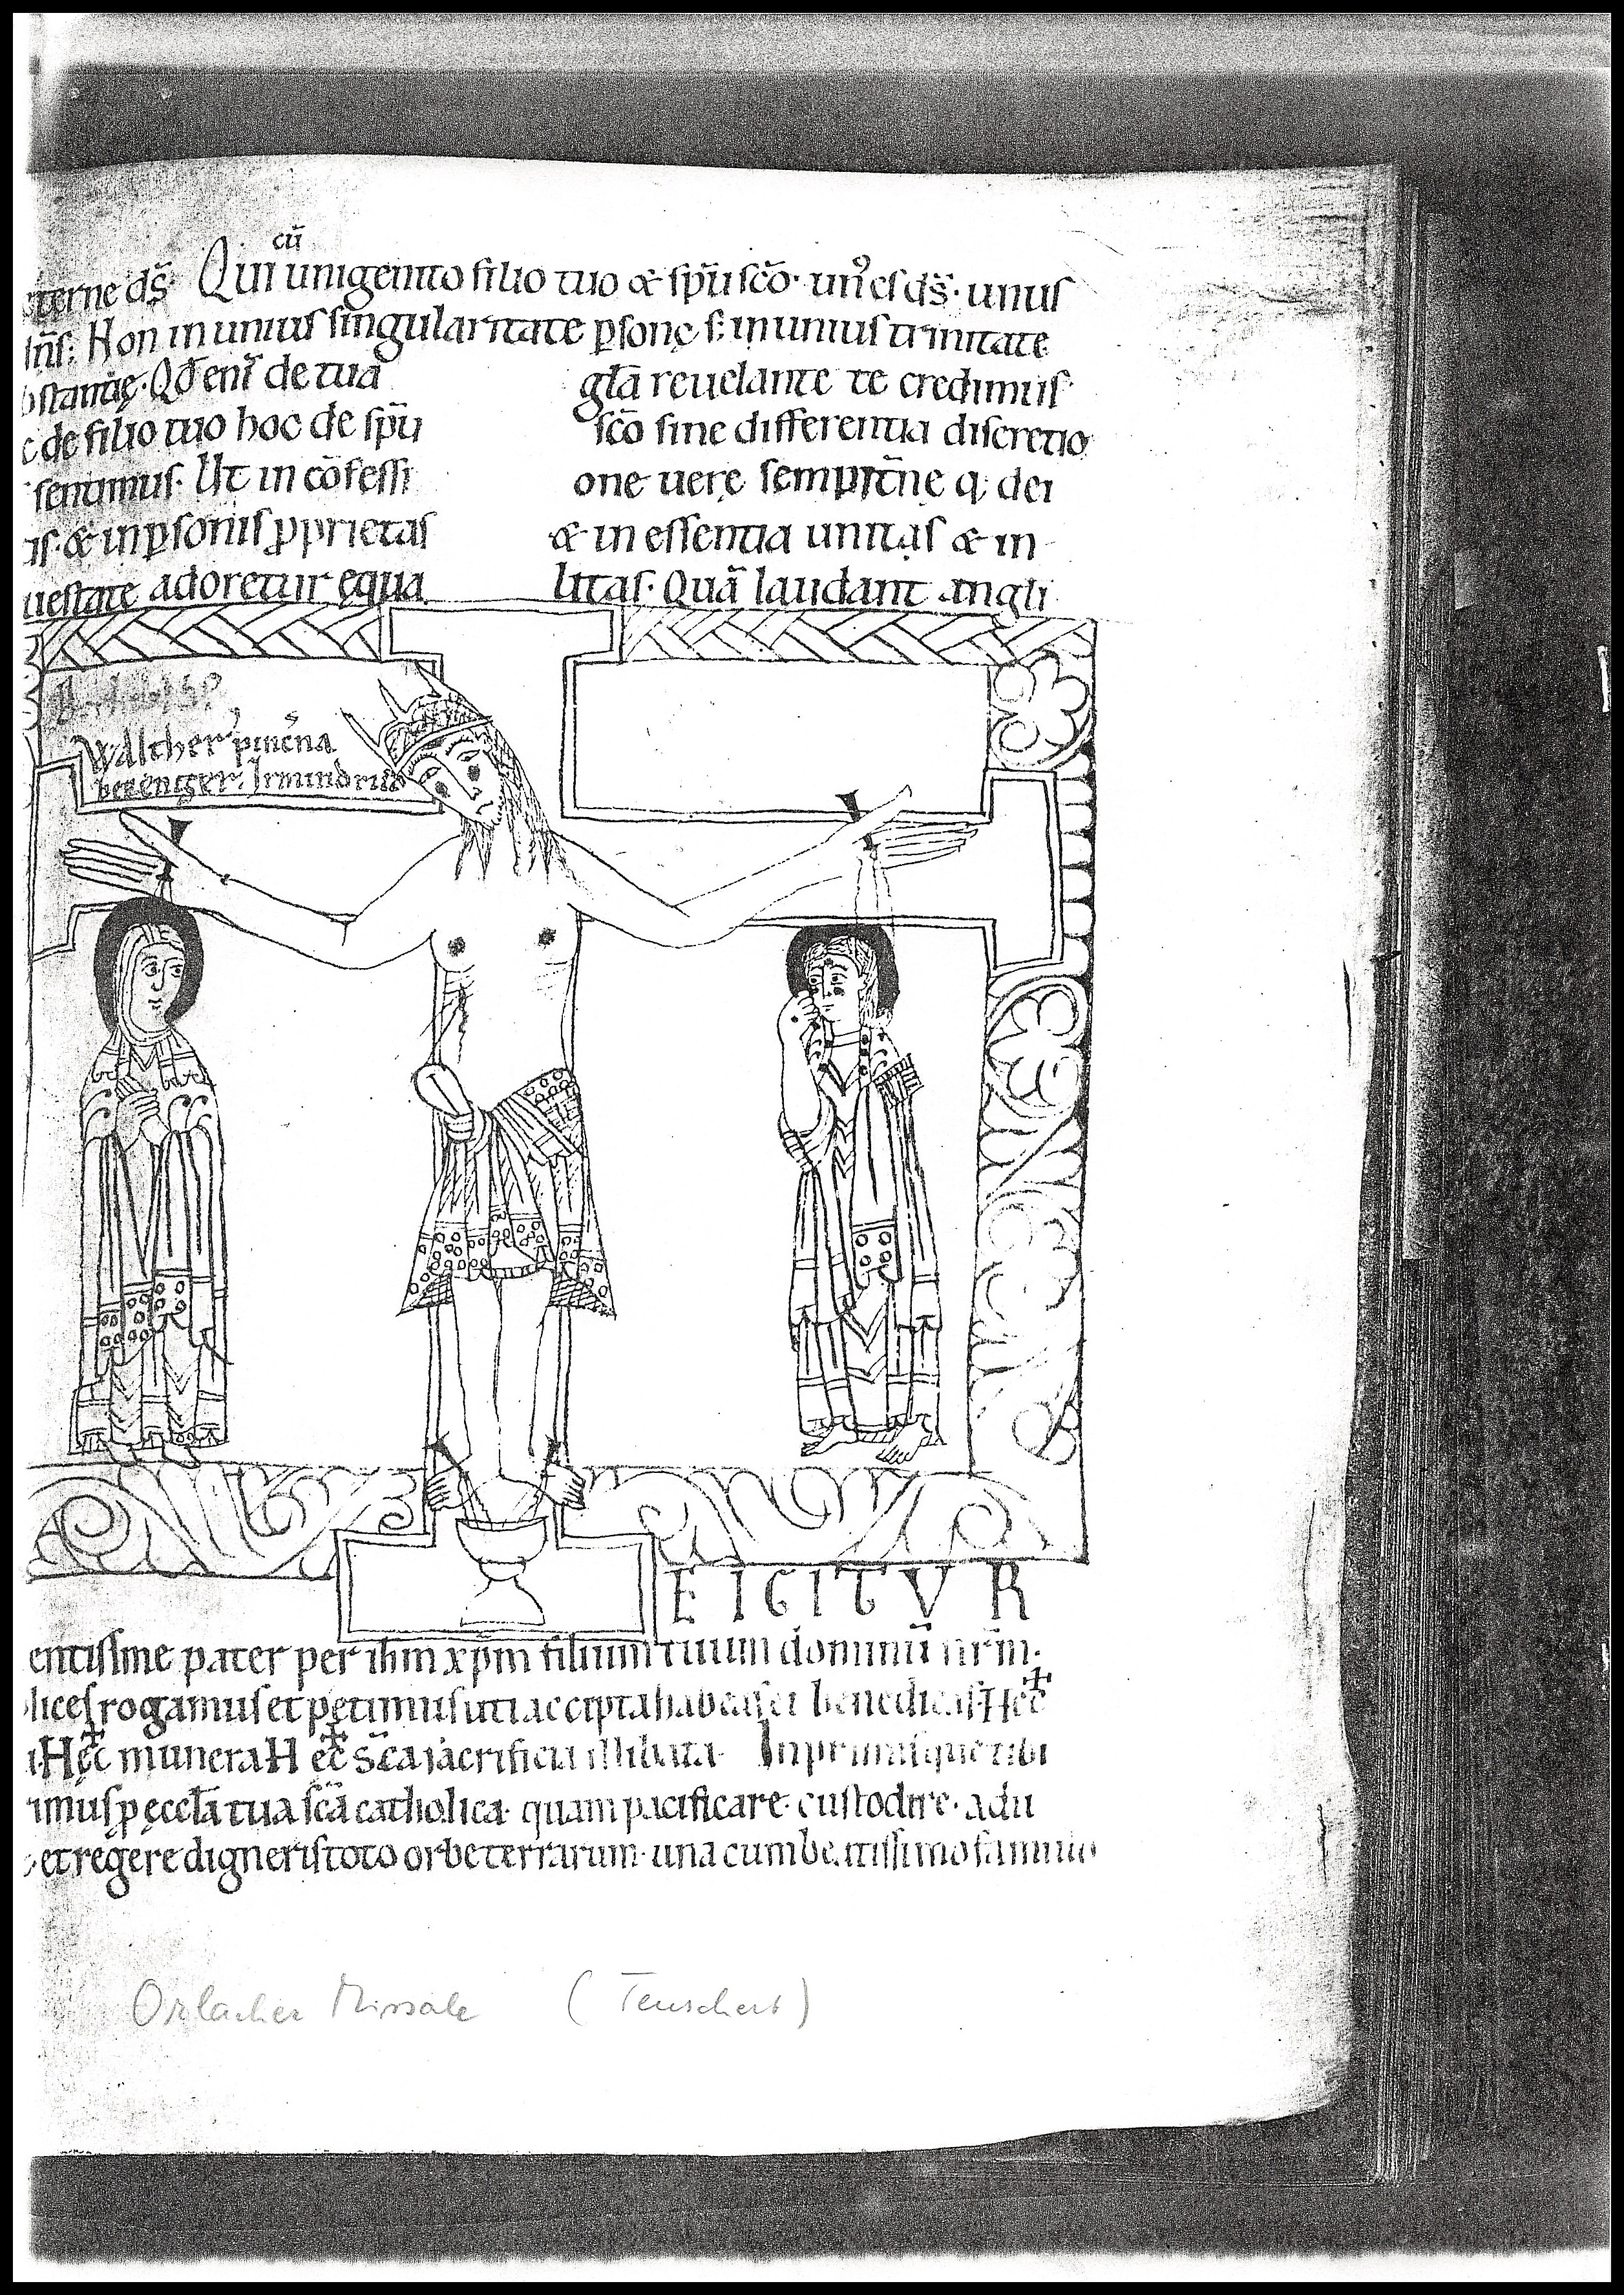 cū
terne ds̄· Qui unigenito filio tuo & spū scō· un᾽ es ds̄· unus
dn̄s: Non in unius singularitate psonę s; in unius trinitate
bstantię· Qd̄ eni᷒ de tua glā reuelante te credimus·
c de filio tuo hoc de spū scō sine differentia discretio
sentimus· Ut in cōfessi one uerę sempit̄ne q; dei
is· & in psonis pprietas & in essentia unitas & in
iestate adoretur ęqua litas· Quā laudant angli
Walther᾽ pincn̄a
berenger. Irmindrud
E IGITVR
entissime pater per ihm xpm filium tuum dominū nr̄m·
lices rogamus et petimus uti accepta habeas et benedicas· Hec̄
Hęc munera Hec̄ s̄ca sacrificia illibata· Inprimisque tibi
rimus p ęccl̄a tua scā catholica· quam pacificare· custodire· adu
et regere digneris toto orbe terrarum· una cum beatissimo famulo
Orlacher Missale (Teuschert)